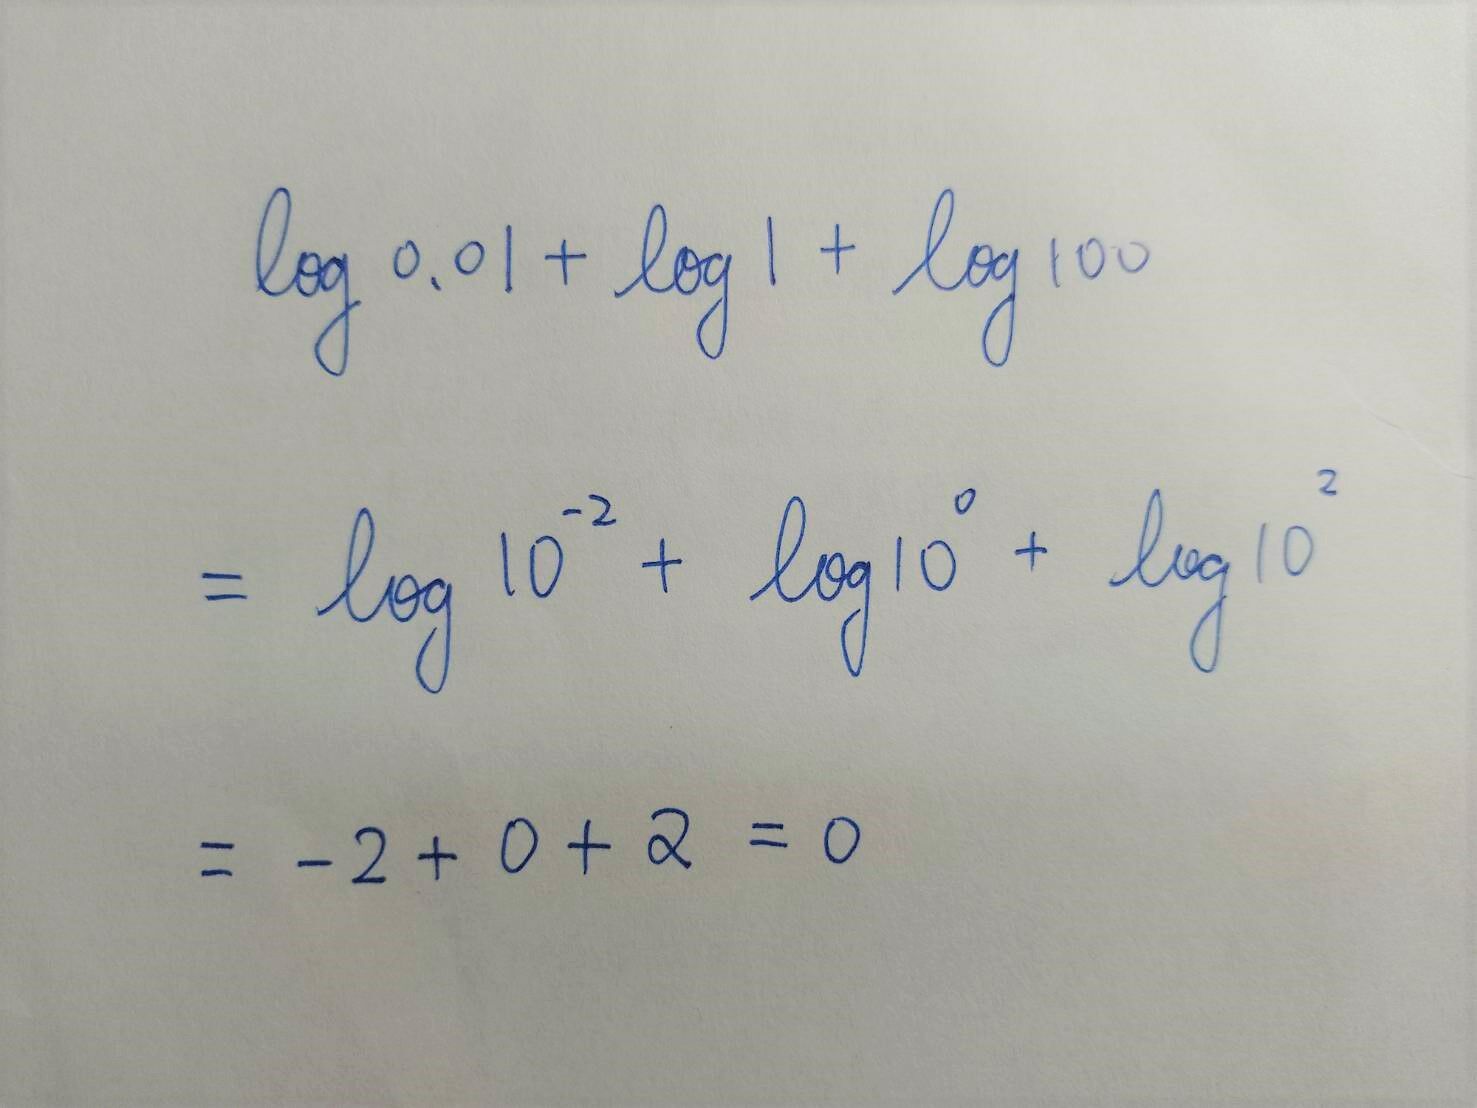 log 0.01 + log 1 + log 100
= log 10⁻² + log 10⁰ + log 10²
= -2 + 0 + 2 = 0